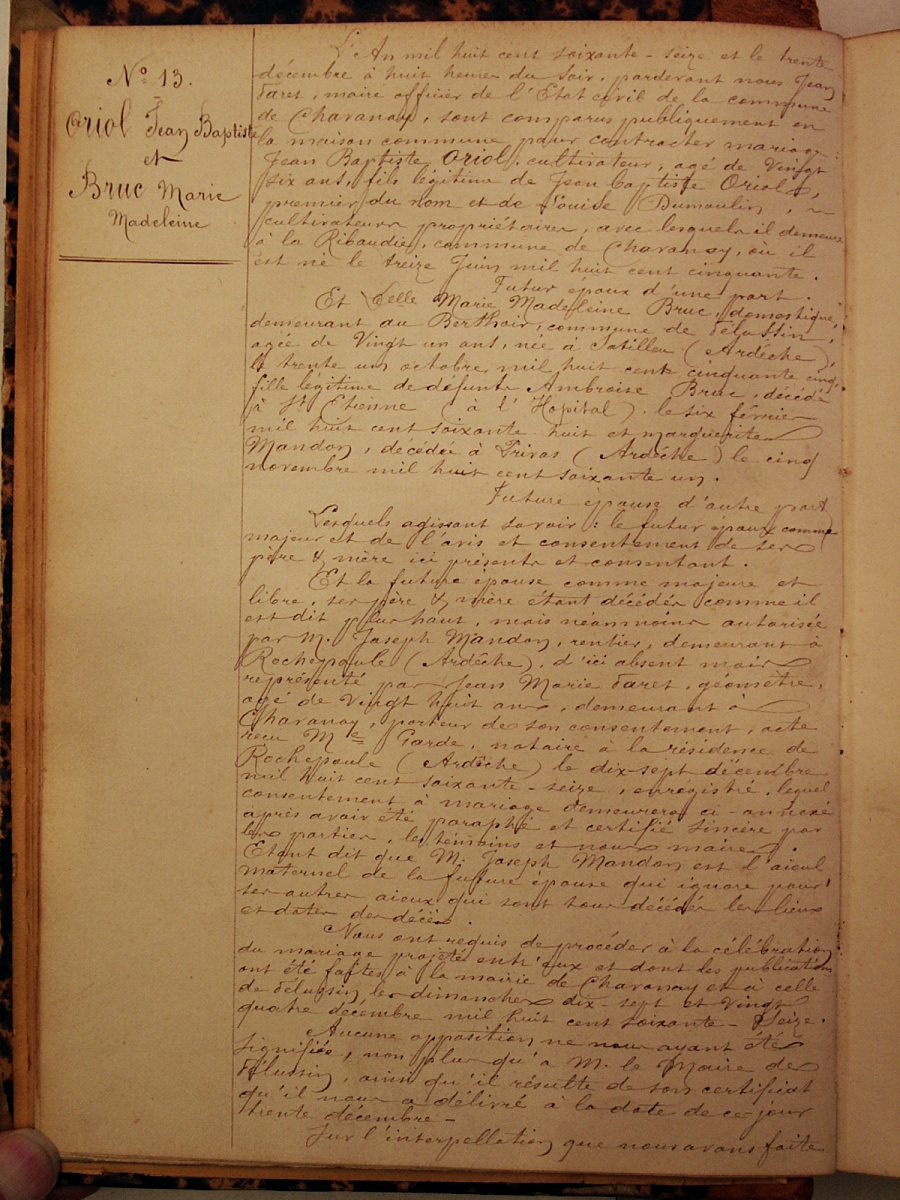 N° 13.
Oriol Jean Baptiste
et
Bruc Marie
Madeleine
L'An mil huit cent soixante-seize et le trente
décembre à huit heures du soir, pardevant nous Jean
Faret, maire officier de l'Etat civil de la commune
de Chavanay, sont comparus publiquement en
la maison commune pour contracter mariage :
Jean Baptiste Oriol, cultivateur, agé de Vingt
six ans, fils légitime de Jean baptiste Oriol,
premier du nom et de Louise Dumoulin,
cultivateurs propriétaires, avec lesquels il demeure
à la Ribaudie, commune de Chavanay, où il
est né le treize Juin mil huit cent cinquante.
Futur époux d'une part.
Et Celle Marie Madeleine Bruc, domestique,
demeurant au Berthoir, commune de Pélussin,
agée de Vingt un ans, née à Satillieu (Ardèche),
le trente un octobre mil huit cent cinquante cinq,
fille légitime de défunts Ambroise Bruc, décédé
à St Etienne (à l'Hopital) le six février
mil huit cent soixante huit et marguerite
Mandon, décédée à Privas (Ardèche) le cinq
novembre mil huit cent soixante un.
Future épouse d'autre part
Lesquels agissant savoir : le futur époux comme
majeur et de l'avis et consentement de ses
père & mère ici présents et consentant.
Et la future épouse comme majeure et
libre, ses père & mère étant décédés comme il
est dit plus haut, mais néanmoins autorisée
par M. Joseph Mandon, rentier, demeurant à
Rochepaule (Ardêche), d'ici absent mais
représenté par Jean Marie Faret, géomètre,
agé de Vingt huit ans, demeurant à
Chavanay, porteur de son consentement, acte
recu Me Garde, notaire à la résidence de
Rochepaule (Ardêche) le dix-sept décembre
mil huit cent soixante-seize, enregistré, lequel
consentement à mariage demeurera ci-annexé
après avoir été paraphé et certifié sincère par
les parties, les témoins et nous maire.
Etant dit que M. Joseph Mandon est l'aieul
maternel de la future épouse qui ignore pour
ses autres aieux qui sont tous décédés les lieux
et dates des décès.
Nous ont requis de procéder à la célébration
du mariage projeté entr'eux et dont les publications
ont été faites à la mairie de Chavanay et à celle
de Pélussin, les dimanches dix-sept et Vingt
quatre décembre mil huit cent soixante-Seize.
Aucune opposition ne nous ayant été
signifiée, non plus qu'à M. le Maire de
Pélussin, ainsi qu'il résulte de son certificat
qu'il nous a délivré à la date de ce jour
trente décembre-
Sur l'interpellation que nous avons faite